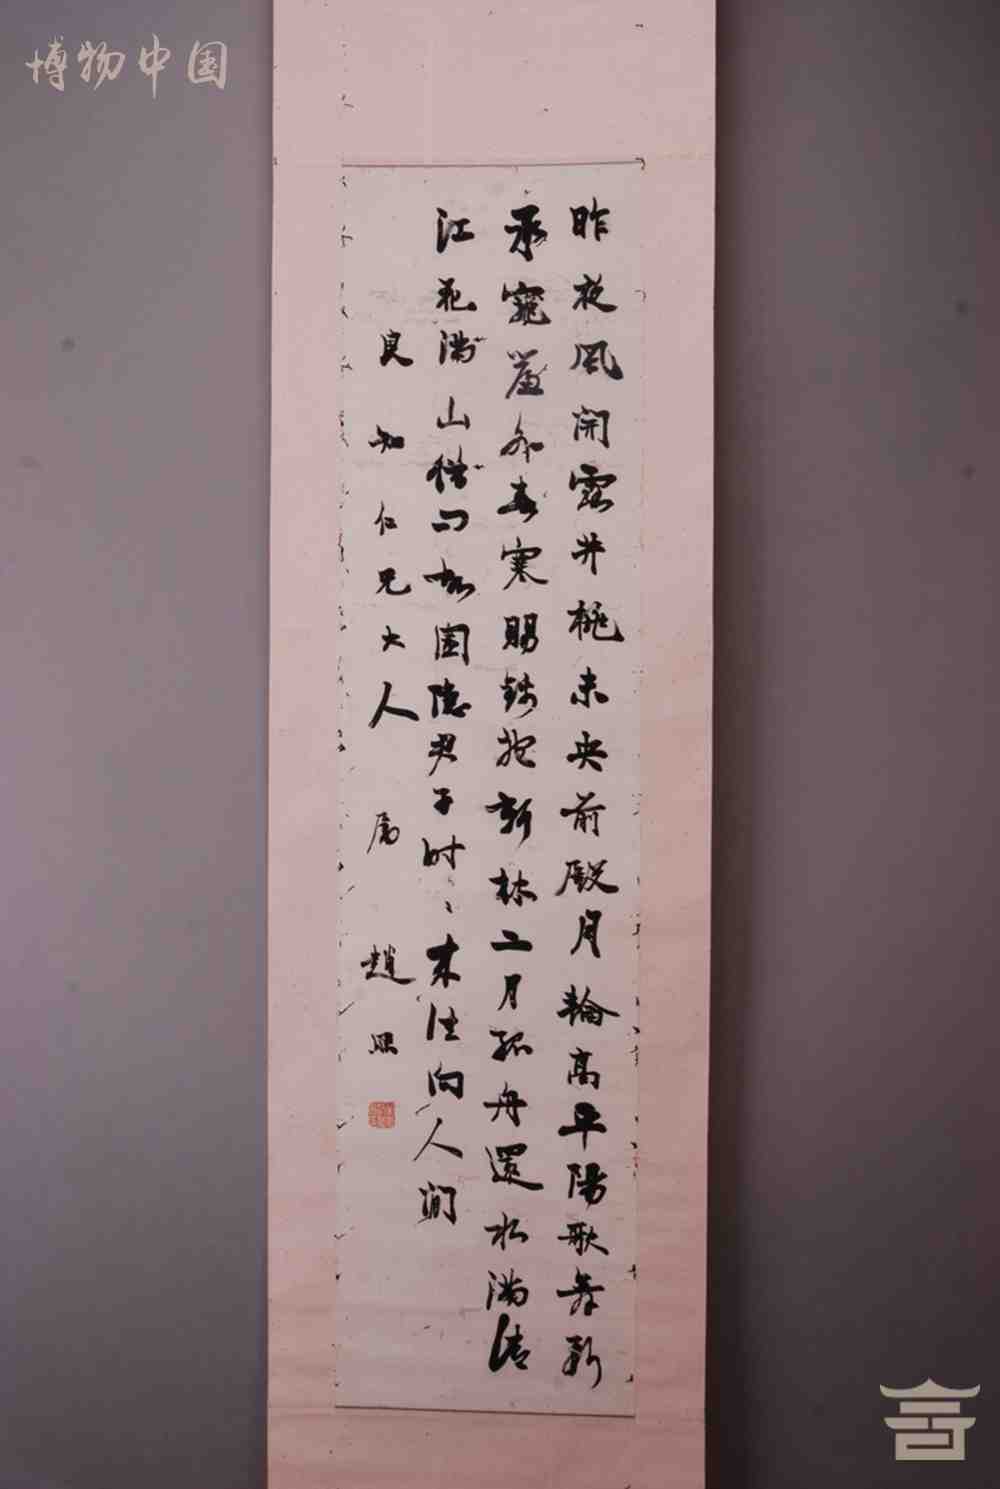 博物中国
昨夜風開露井桃未央前殿月輪高平陽歌舞新
承寵簾外春寒賜錦袍新林二月孤舟還水滿清
江花滿山借問故園隱君子時〻來往向人間
良知仁兄大人 属 趙熙